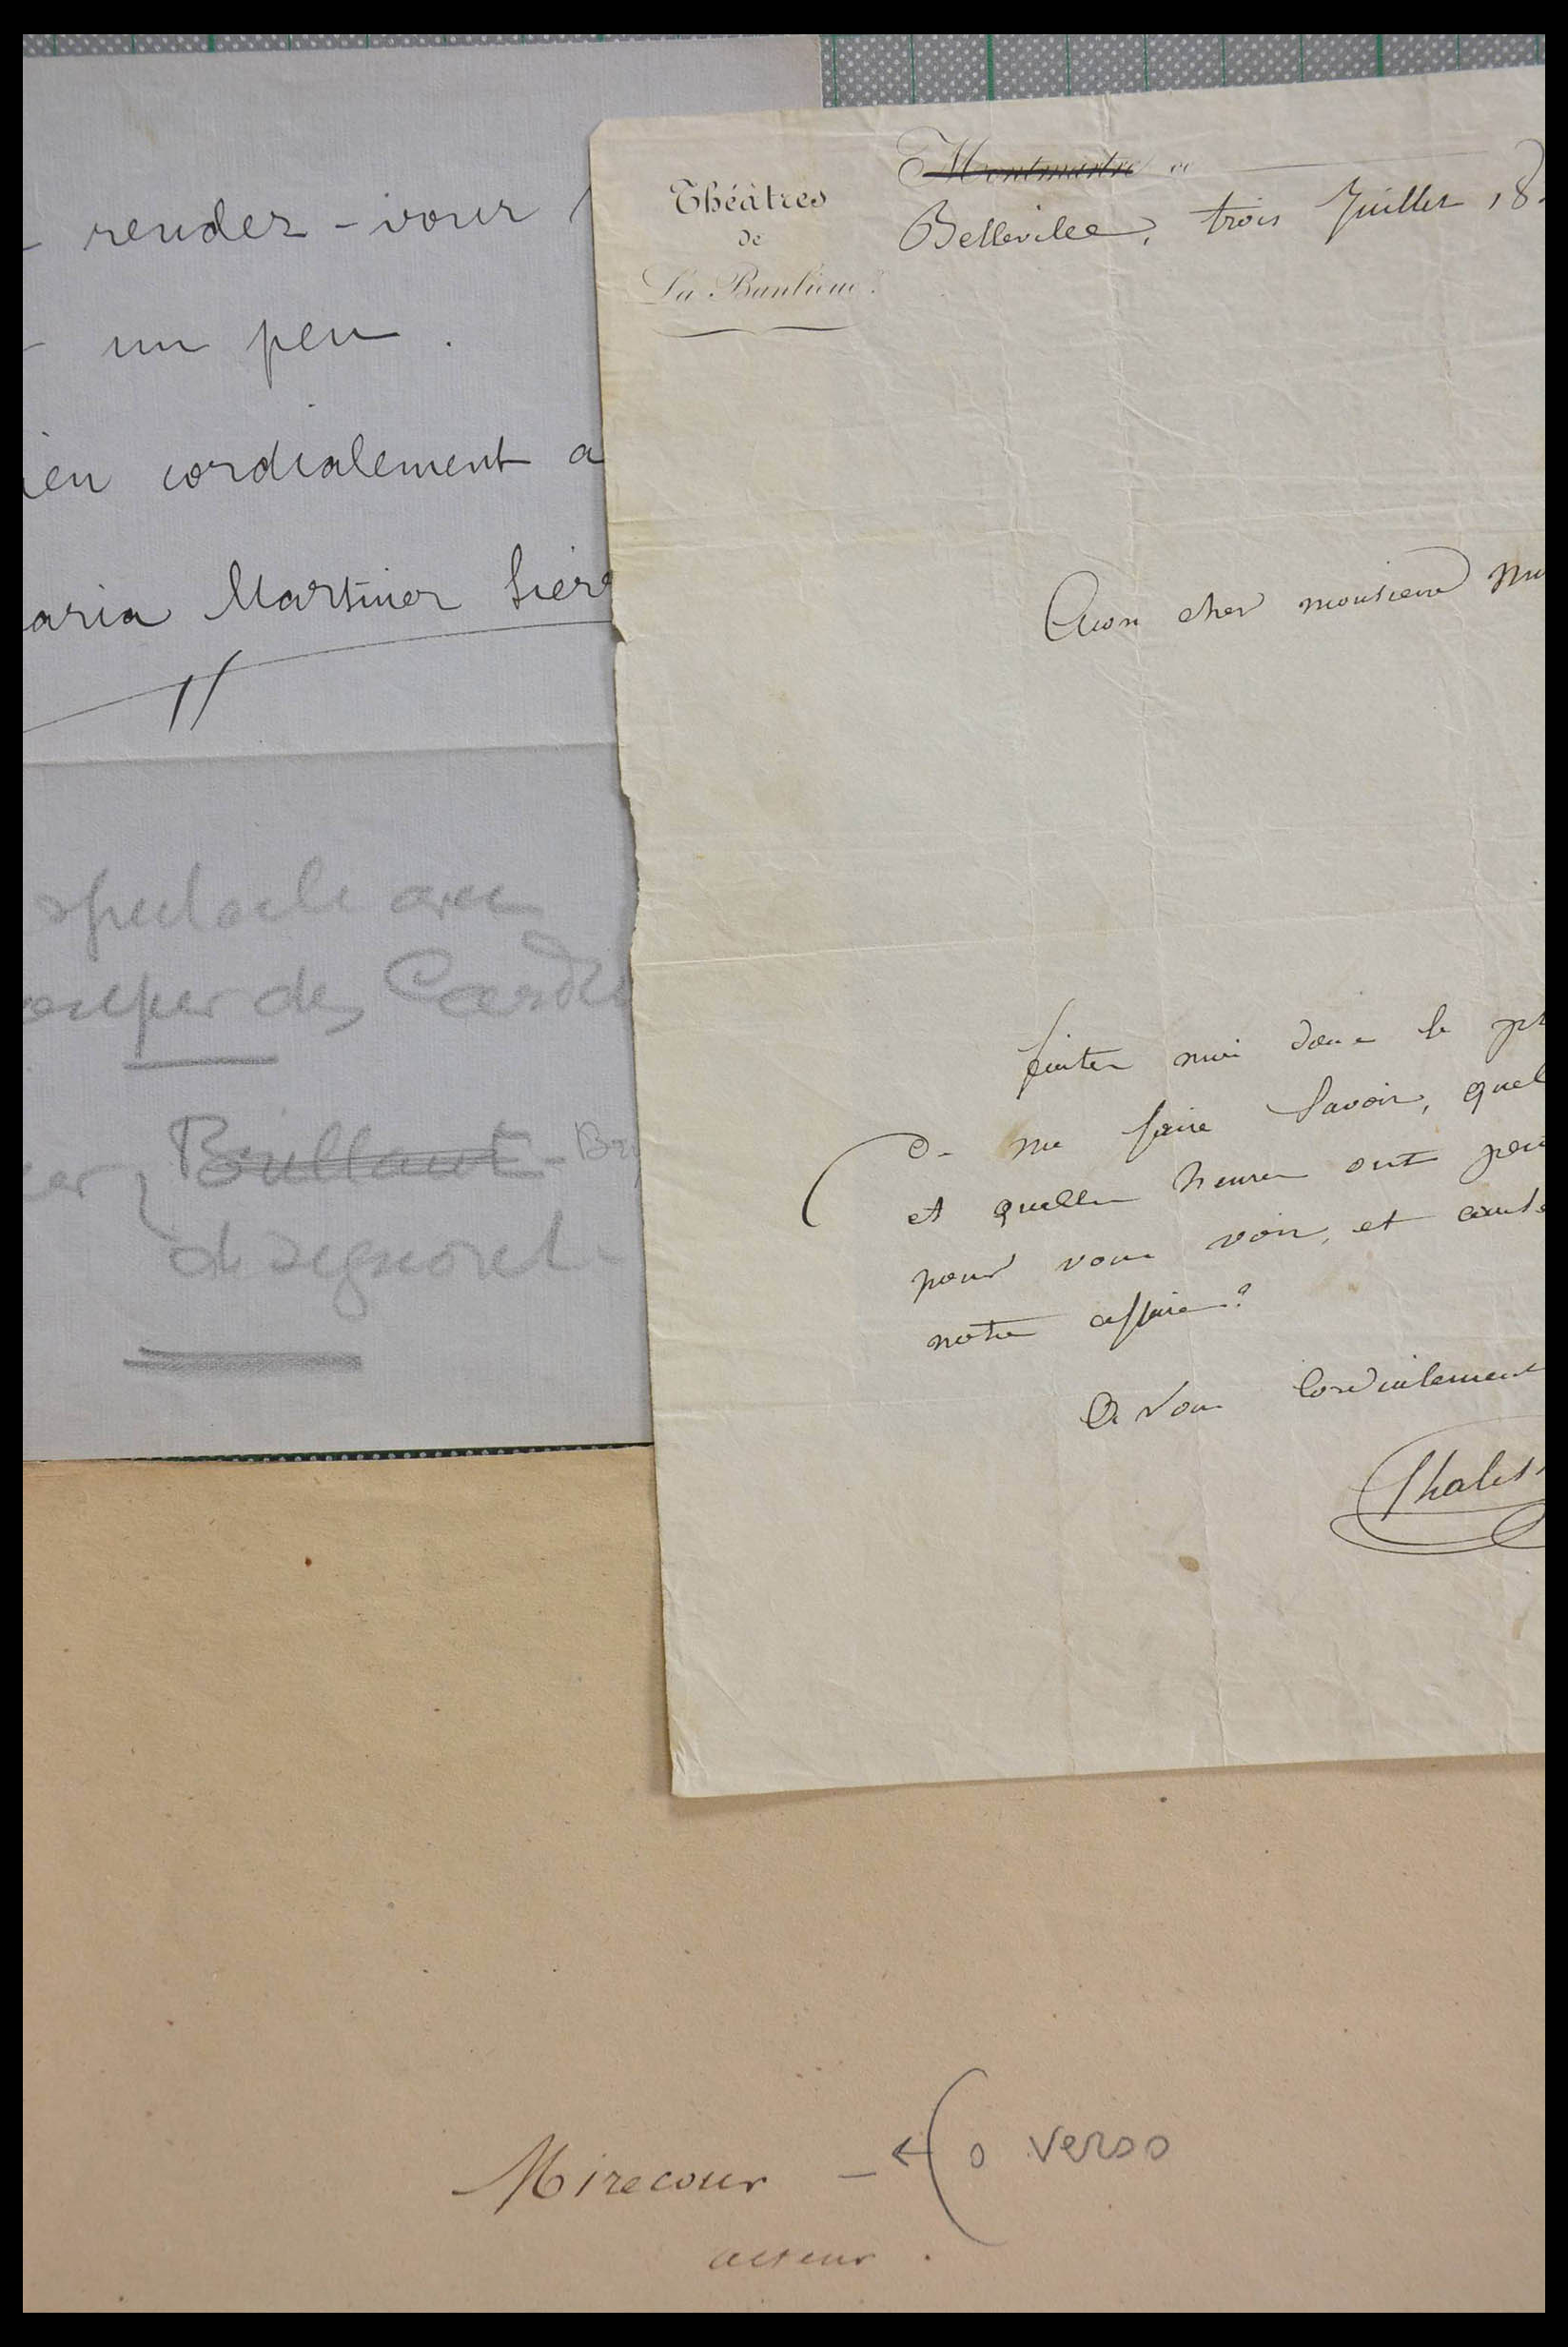 - rendez-vous
- un peu.
ien cordialement a
aria Martinez Sierr
spectacle avec
souper des Cardi
Brillant - Br
de signoret
Théâtres
de
La Banlieue.
Montmartre ou
Belleville, trois Juillet 18
Mon cher monsieur
faites moi donc le
de me faire savoir, quel
et quelles heures ont peu
pour vous voir, et
notre affaire?
A vous cordialement
Mirecour - ← ( o verso
acteur.